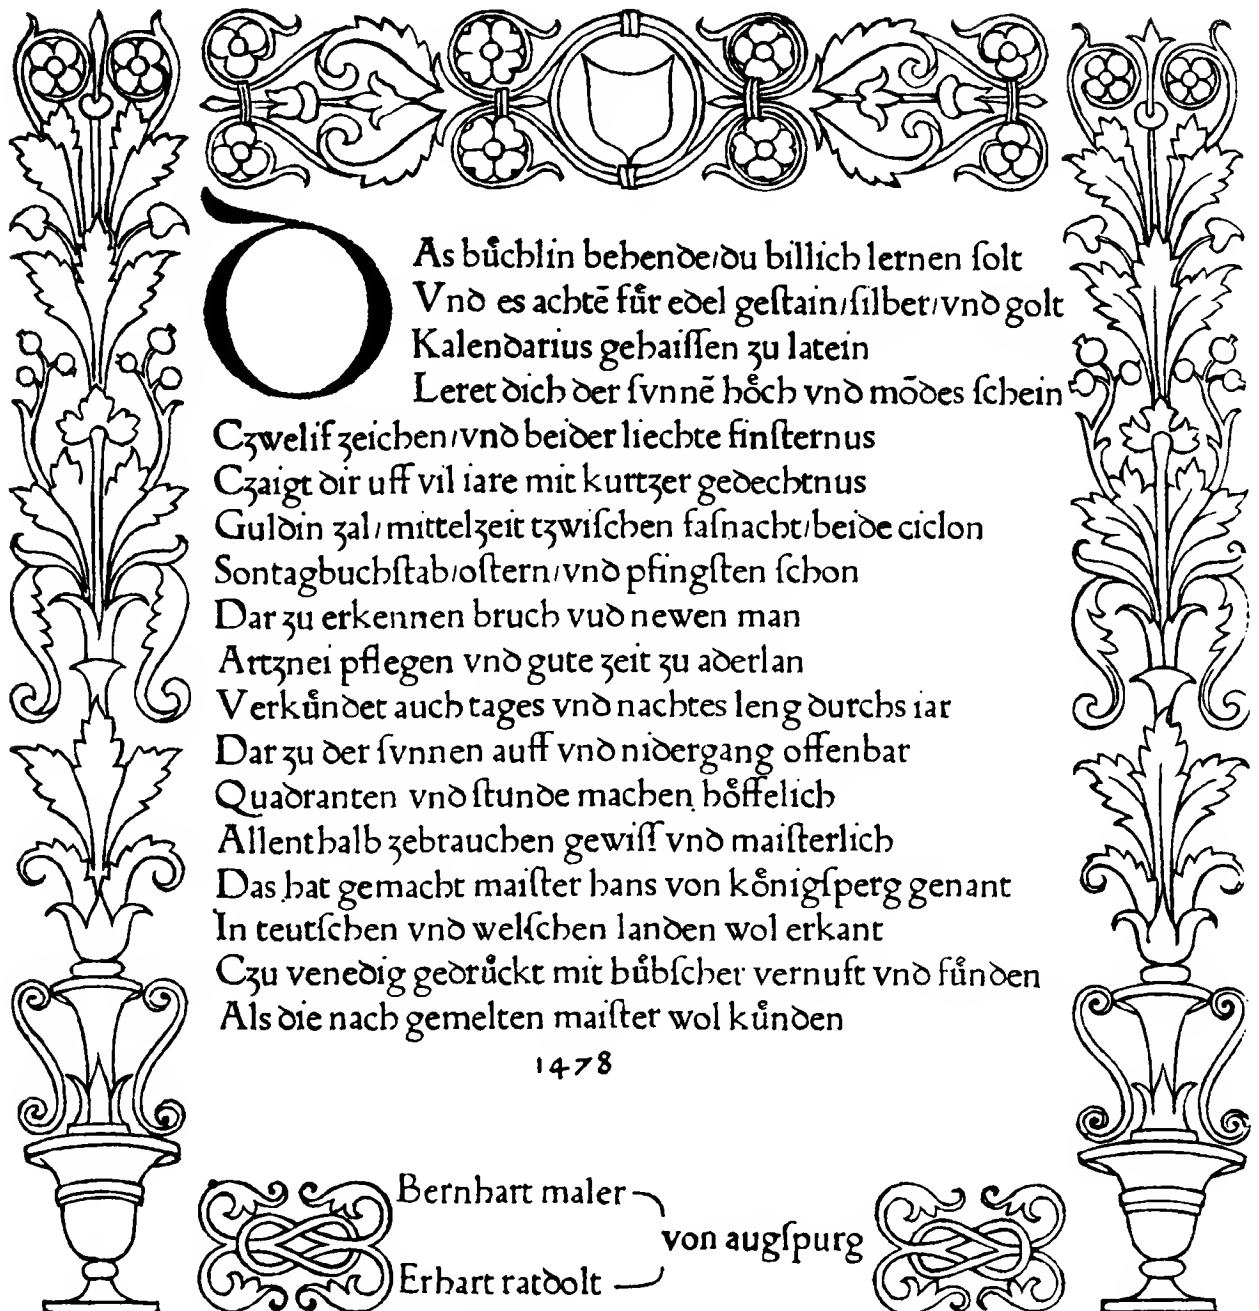 DAs bůchlin behende/du billich lernen ſolt
Vnd es achtē fůr edel geſtain/ſilber/vnd golt
Kalendarius gehaiſſen ʒu latein
Leret dich der ſvnnē hoͤch vnd mōdes ſchein
Cʒwelif ʒeichen/vnd beider liechte finſternus
Cʒaigt dir uff vil iare mit kurtʒer gedechtnus
Guldin ʒal/mittelʒeit tʒwiſchen faſnacht/beide ciclon
Sontagbuchſtab/oſtern/vnd pfingſten ſchon
Dar ʒu erkennen bruch vud newen man
Artʒnei pflegen vnd gute ʒeit ʒu aderlan
Verkůndet auch tages vnd nachtes leng durchs iar
Dar ʒu der ſvnnen auff vnd nidergang offenbar
Quadranten vnd ſtunde machen hoͤffelich
Allenthalb ʒebrauchen gewiſſ vnd maiſterlich
Das hat gemacht maiſter hans von koͤnigſperg genant
In teutſchen vnd welſchen landen wol erkant
Cʒu venedig gedrůckt mit hůbſcher vernuft vnd fůnden
Als die nach gemelten maiſter wol kůnden
1478
Bernhart maler
von augſpurg
Erhart ratdolt